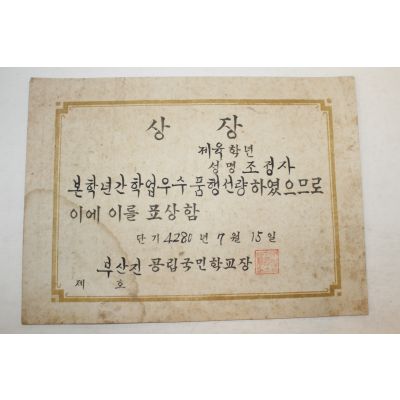 상 장
제육학년
성명 조경사
본학년간학업우수품행선량하였으므로
이에 이를 표상함
단기 4280 년 7 월 15 일
부산진 공립국민학교장
제 호